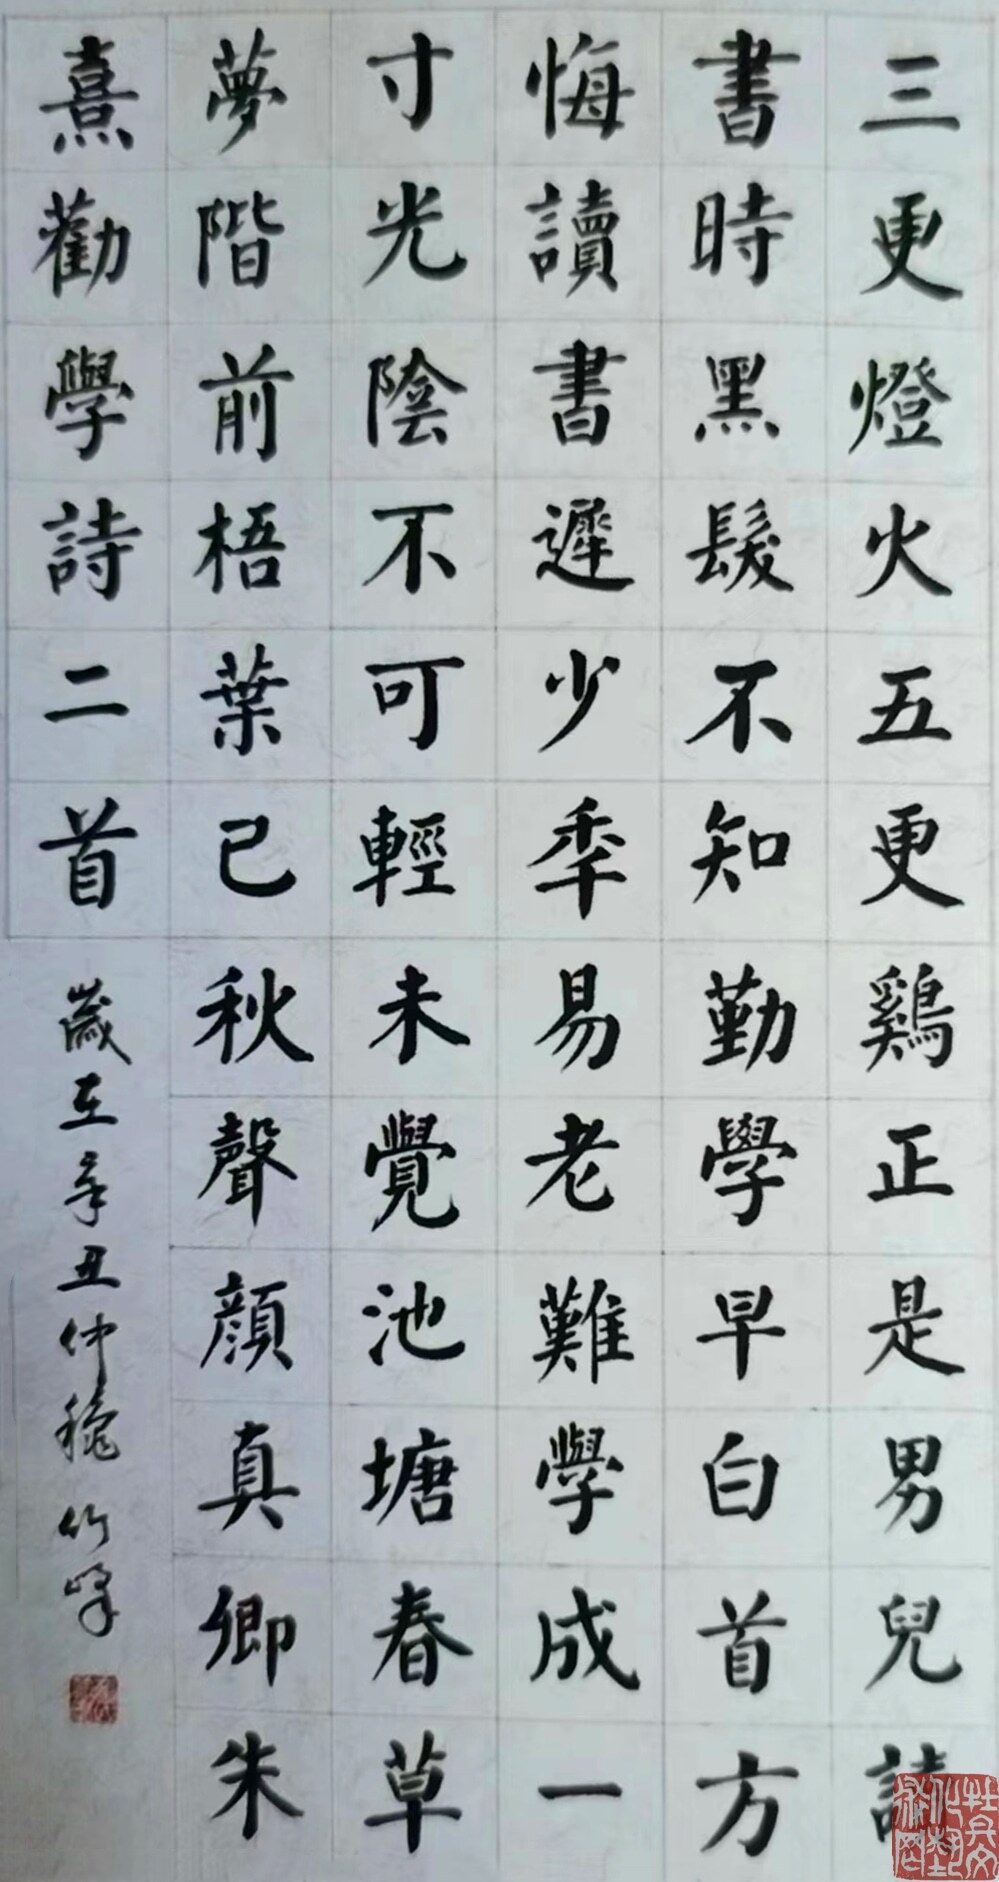 三更燈火五更鷄正是男兒讀
書時黑髮不知勤學早白首方
悔讀書遲少季易老難學成一
寸光陰不可輕未覺池塘春草
夢階前梧葉已秋聲顔真卿朱
熹勸學詩二首
歲在辛丑仲穐竹峯